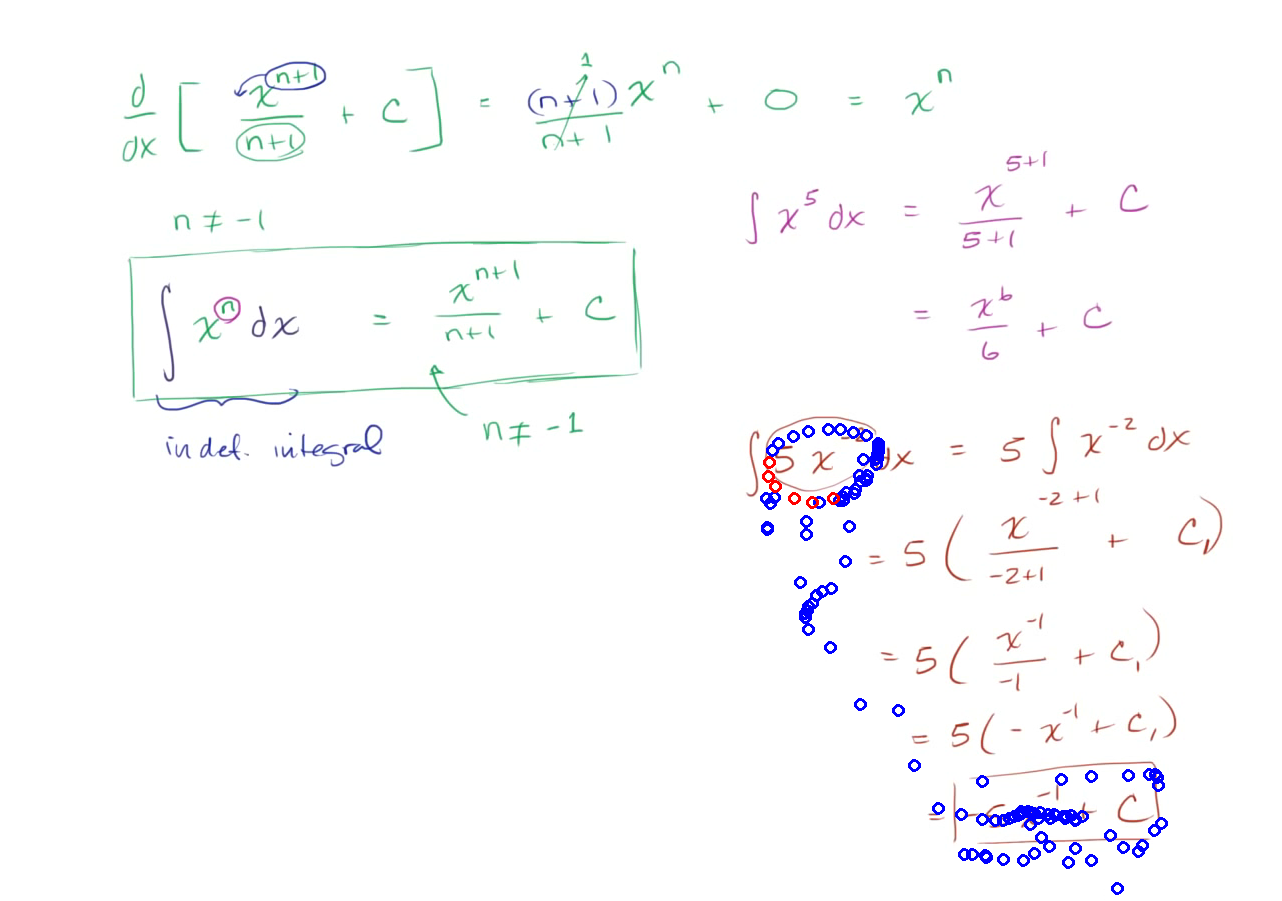 d/dx [ x^(n+1)/(n+1) + C ] = (n+1)/(n+1) x^n + 0 = x^n
1
n ≠ -1
∫ x^n dx = x^(n+1)/(n+1) + C
n ≠ -1
indef. integral
∫ x^5 dx = x^(5+1)/(5+1) + C
= x^6/6 + C
∫ 5 x^-2 dx = 5 ∫ x^-2 dx
= 5 ( x^(-2+1)/(-2+1) + C₁ )
= 5 ( x^-1/-1 + C₁ )
= 5 ( - x^-1 + C₁ )
= -1 + C